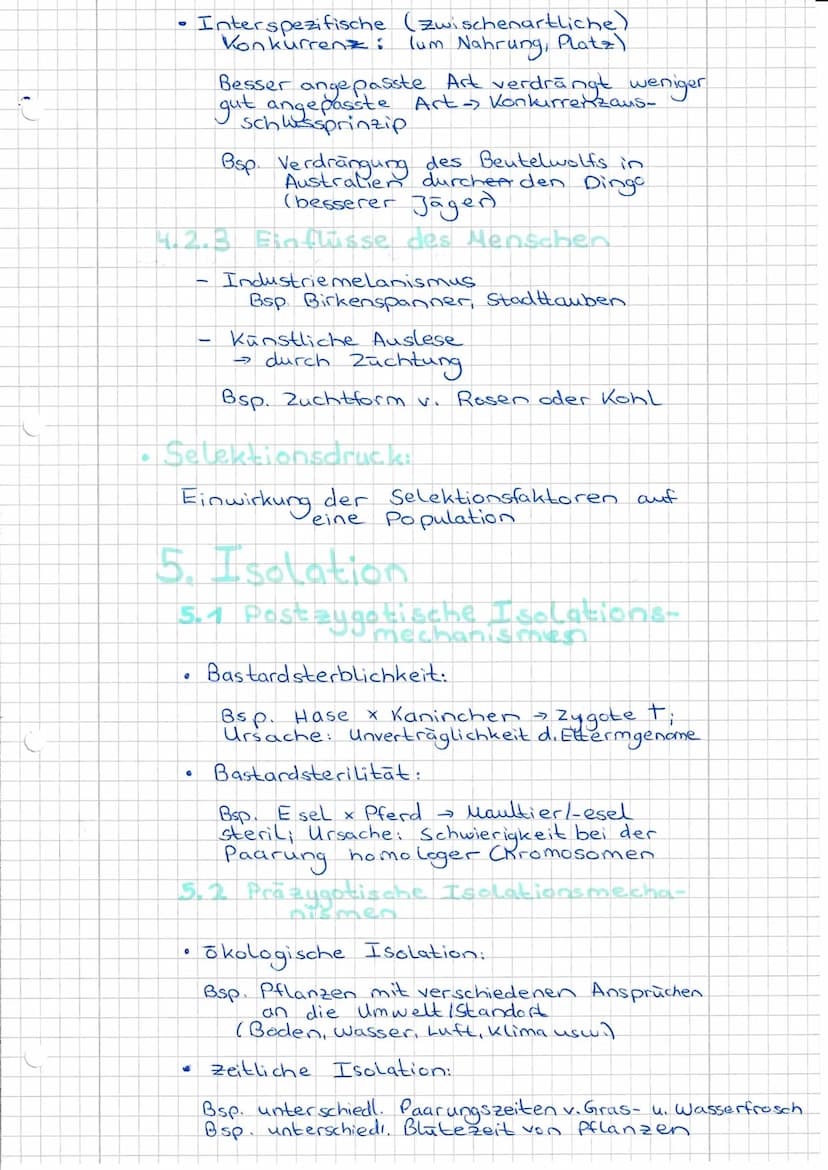 • Interspezifische (zwischenartliche)
Konkurrenz: (um Nahrung, Platz)
Besser angepasste Art verdrängt weniger
gut angepasste Art → Konkurrenzaus-
schlussprinzip
Bsp. Verdrängung des Beutelwolfs in
Australien durch den Dingo
(besserer Jäger)
4.2.3 Einflüsse des Menschen
- Industriemelanismus
Bsp. Birkenspanner, Stadttauben
- Künstliche Auslese
→ durch Züchtung
Bsp. Zuchtform v. Rosen oder Kohl
• Selektionsdruck:
Einwirkung der Selektionsfaktoren auf
eine Population
5. Isolation
5.1 Postzygotische Isolations-
mechanismen
• Bastardsterblichkeit:
Bsp. Hase x Kaninchen → Zygote †;
Ursache: Unverträglichkeit d. Elterngenome
• Bastardsterilität:
Bsp. Esel x Pferd → Maultier/-esel
steril; Ursache: Schwierigkeit bei der
Paarung homologer Chromosomen
5.2 Präzygotische Isolationsmecha-
nismen
• ökologische Isolation:
Bsp. Pflanzen mit verschiedenen Ansprüchen
an die Umwelt/Standort
(Boden, Wasser, Luft, Klima usw.)
• zeitliche Isolation:
Bsp. unterschiedl. Paarungszeiten v. Gras- u. Wasserfrosch
Bsp. unterschiedl. Blütezeit von Pflanzen